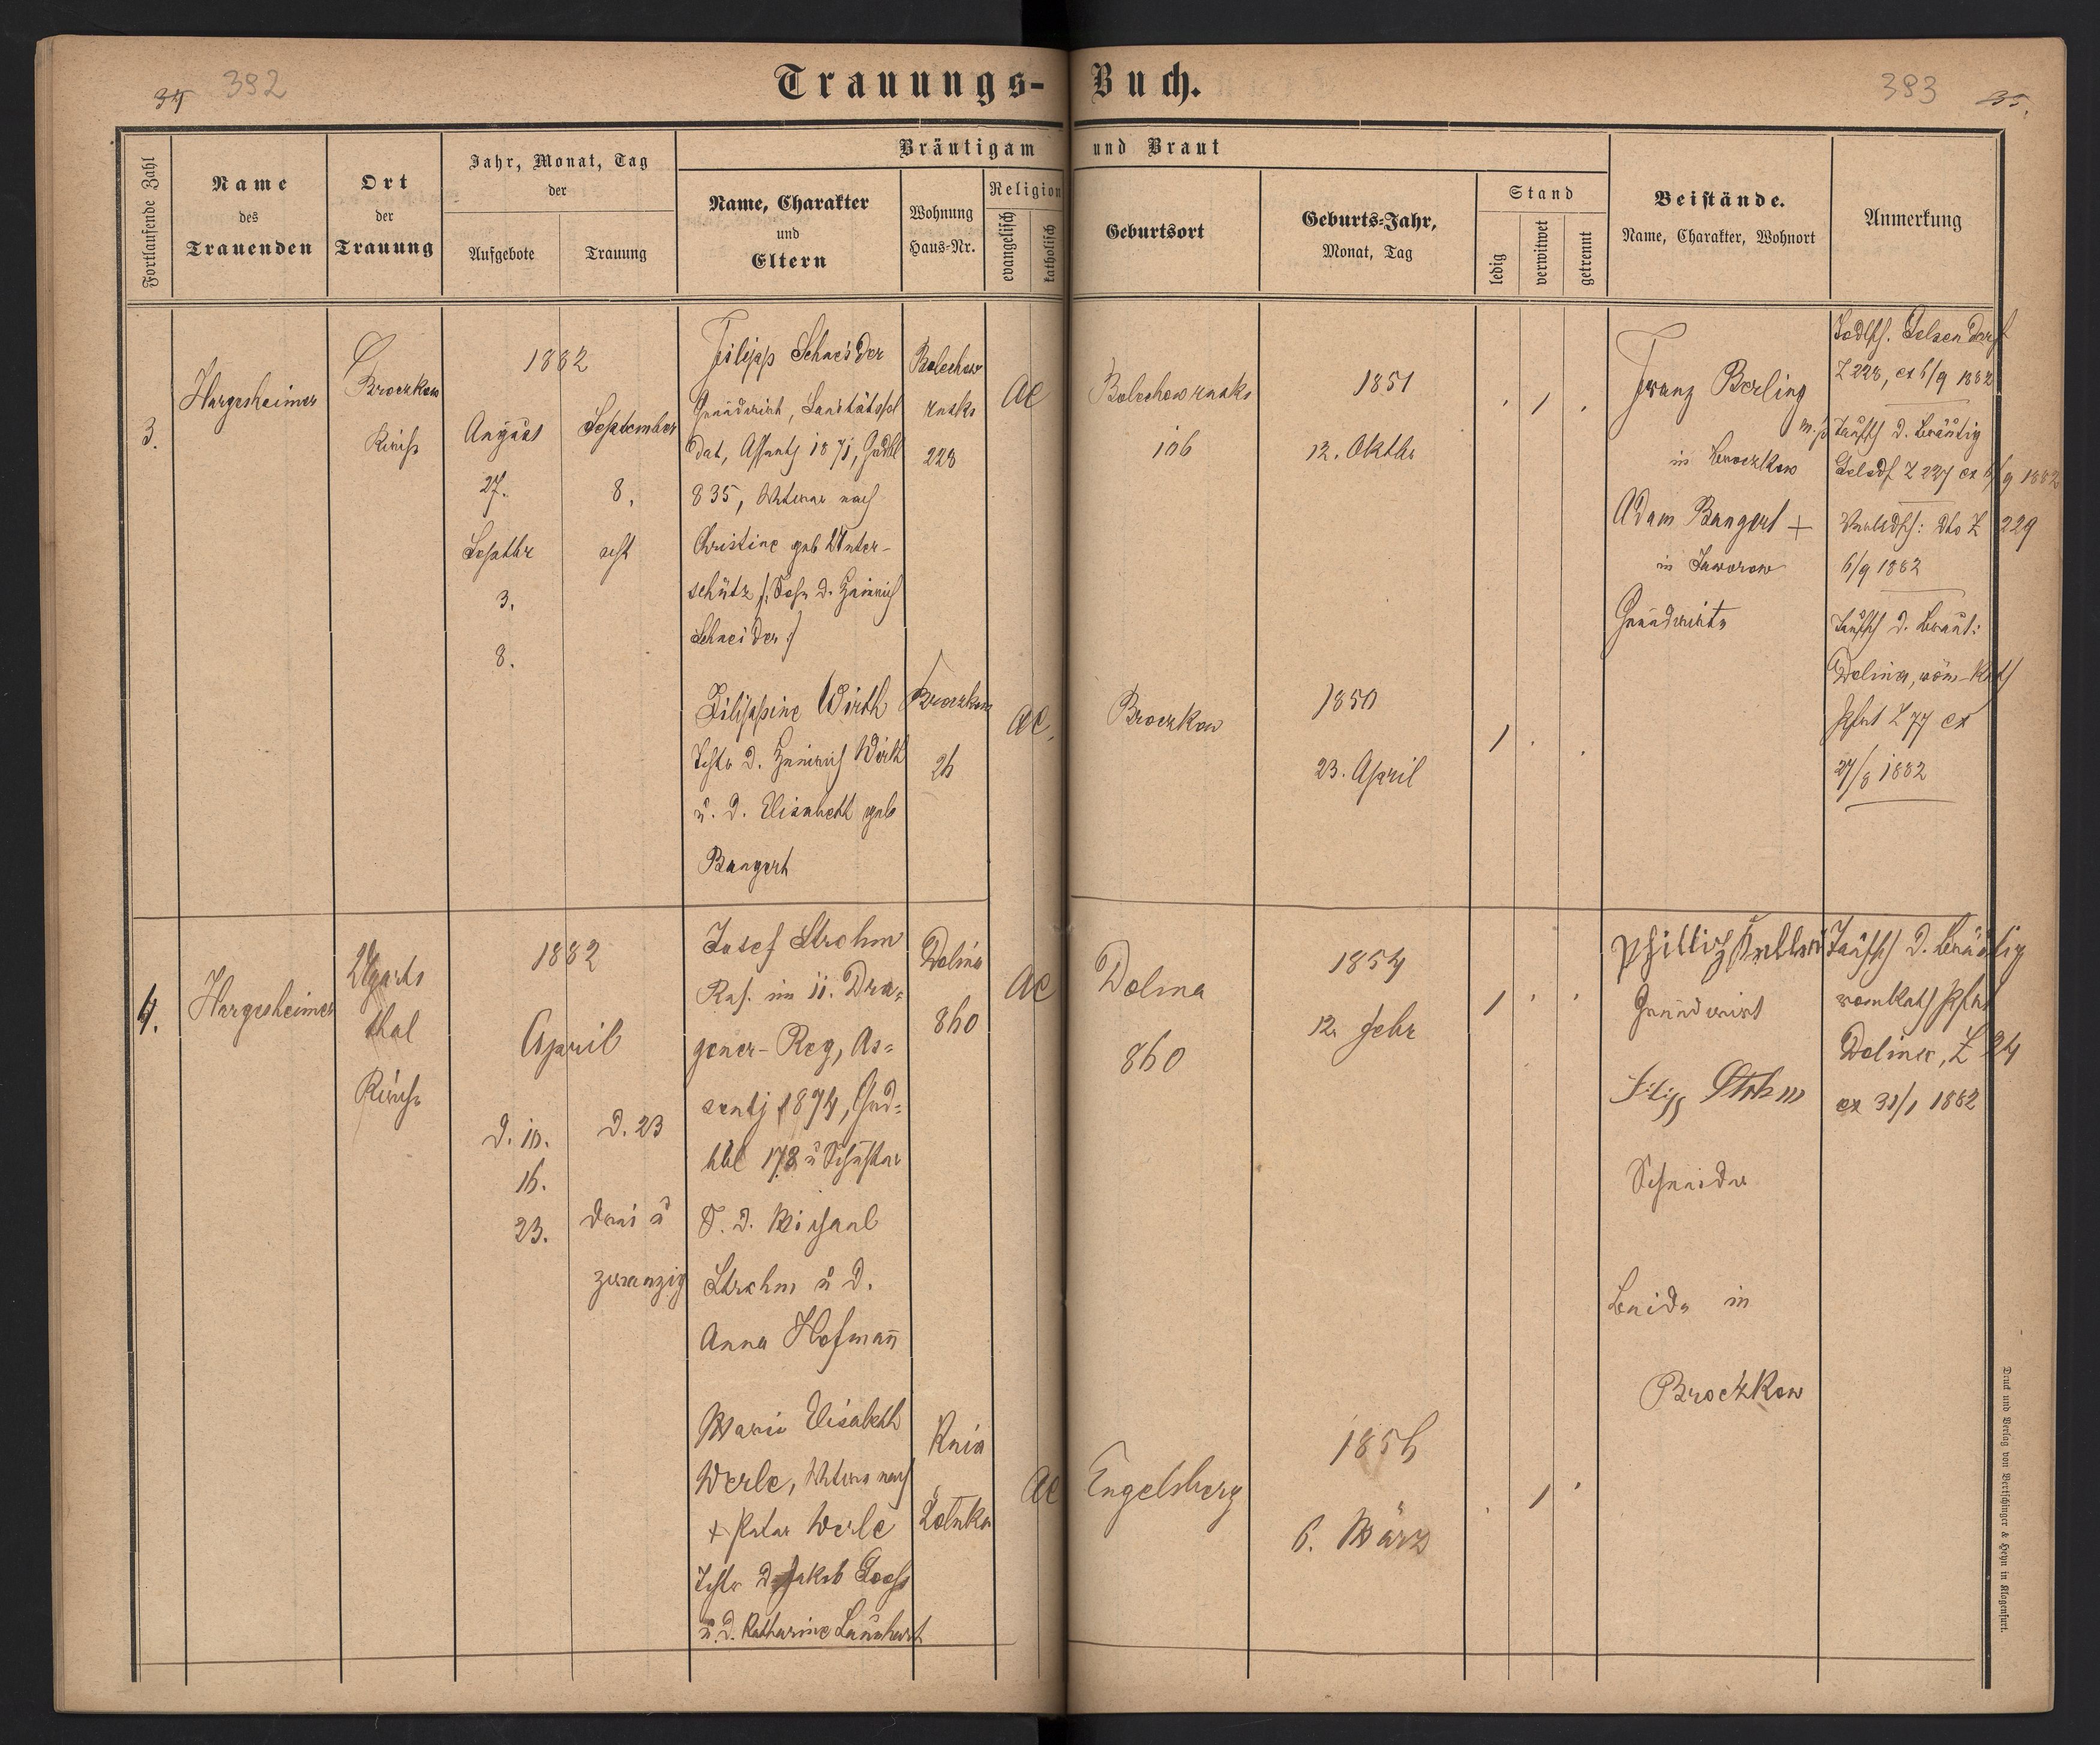 34 392
Trauungs-Buch.
383 35.
Fortlaufende Zahl
Name
des
Trauenden
Ort
der
Trauung
Jahr, Monat, Tag
der
Aufgebote
Trauung
Bräutigam und Braut
Name, Charakter
und
Eltern
Wohnung
Haus-Nr.
Religion
evangelisch
katholisch
Geburtsort
Geburts-Jahr,
Monat, Tag
Stand
ledig
verwitwet
getrennt
Beistände.
Name, Charakter, Wohnort
Anmerkung
3.
Hargesheimer
Broczkow
Kirche
1882
August
27.
Septbr
3.
8.
September
8.
acht
Filipp Schneider
Grundwirt,
dat, Assentj 1871, Gudbl
835, Witwer nach
Christine geb Unter-
schütz /: Sohn d. Heinrich
Schneider :/
Bolechow
rusks
228
AC
Bolechow rusks
106
1851
12. Oktbr
Franz Berling
m/p
in Broczkow
Adam Bangert +
in Jaworow
Grundwirte
Todtsch. Gelsendorf
Z 228, ex 6/9 1882
Taufsch d. Bräutig
Gelsdf Z 227 ex 6/9 1882
dto Z 229
6/9 1882
Taufsch d. Braut:
Dolina, röm-Kath
Pfrt Z 77 ex
27/8 1882
Filippine Wirth
Tchtr d. Heinrich Wirth
u. d. Elisabeth geb
Bangert
Broczkow
26
AC.
Broczkow
1850
23. April
4.
Hargesheimer
Ugarts
thal
Kirche
1882
April
d. 10.
16.
23.
d. 23
drei u
zwanzig
Josef Strohm
Res. im 11. Dra-
goner-Reg, As-
sentj 1874, Gud-
bbl 178 u Schuster
S. d. Michael
Strohm u d.
Anna Hofmann
Dolina
860
AC
Dolina
860
1854
12. Febr
Phillip
Grundwirt
Filipp Strohm
Schneider
Beide in
Broczkow
Taufsch d. Bräutig
romkath Pfrt
Dolina, Z 24
ex 31/1 1882
Marie Elisabeth
Werle, Witwe nach
+ Peter Werle
Tchtr d. Jakob Looss
u. d. Katharine Lauchart
Knia
Łotuka
AC
Engelsberg
1856
6. März
Druck und Verlag von Bertschinger & Heyn in Klagenfurt.